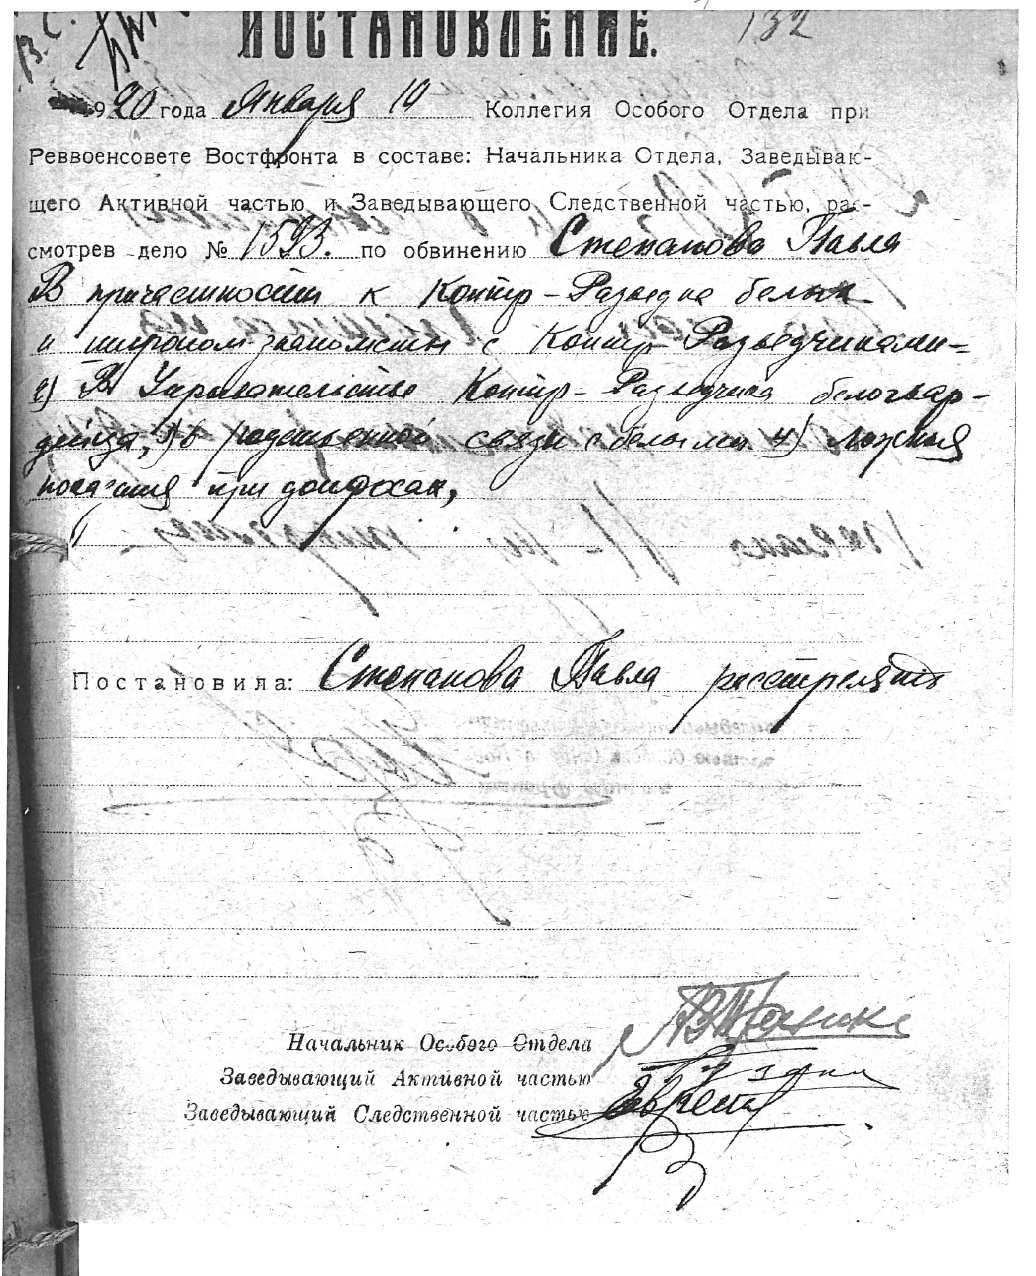 В.С.
132
ПОСТАНОВЛЕНИЕ.
1920 года Января 10 Коллегия Особого Отдела при
Реввоенсовете Востфронта в составе: Начальника Отдела, Заведываю-
щего Активной частью и Заведывающего Следственной частью, рас-
смотрев дело № 1593. по обвинению Степанова Павла
В причастности к Контр-Разведке белых
и широком знакомстве с Контр-Разведчиками=
2) В Укрывательстве Контр-Разведчика белогвар-
дейца, 3) в родственной связи с белыми 4) ложныя
показания при допросах,
Постановила: Степанова Павла расстрелять
Начальник Особого Отдела
Заведывающий Активной частью
Заведывающий Следственной частью